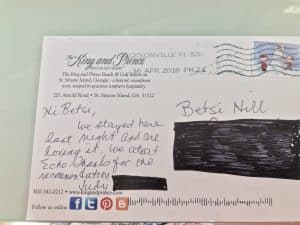 The King and Prince
BEACH & GOLF RESORT
JACKSONVILLE FL 320
16 APR 2018 PM 2 L
The King and Prince Beach & Golf Resort on
St. Simons Island, Georgia - a historic oceanfront
icon, steeped in gracious southern hospitality.
201 Arnold Road • St. Simons Island, GA 31522
Hi Betsi,
Betsi Hill
We stayed here
last night and are
loving it. We ate at
Echo. Thanks for the
recommendation.
Judy
800-342-0212 • www.kingandprince.com
Follow us online: